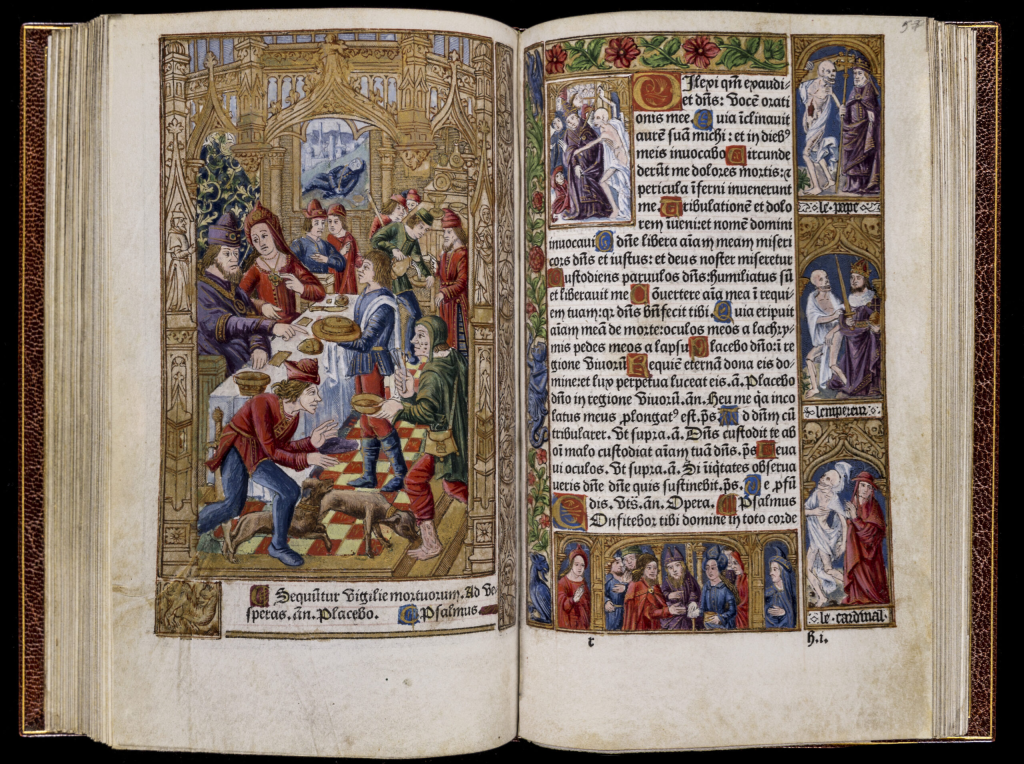 Sequu᷑tur Vigilie mortuorum. Ad ve
speras. añ. Placebo. Psalmus
57
Dilexi qm̄ exaudi-
et dn̄s: vocē orati
onis mee. Quia īclinauit
aurē suā michi: et in dieb⁹
meis inuocabo Circunde
derūt me dolores mortis: ⁊
pericula īferni inuenerunt
me. Tribulationē et dolo
rem īueni: et nomē domini
inuocaui O dn̄e libera aīaꝫ meaꝫ miseri
cors dn̄s et iustus: et deus noster miseretur
Custodiens paruulos dn̄s: humiliatus sū
et liberauit me Conuertere aīa mea ī requi-
em tuam: qꝛ dn̄s bn̄fecit tibi. Quia eripuit
aīam meā de morte: oculos meos a lachry-
mis pedes meos a lapsu Placebo dn̄o: ī re
gione viuorū Requiē eternā dona eis do-
mine: et lux perpetua luceat eis. ā. Placebo
dn̄o in regione viuorū. ān. Heu me qꝛ inco
latus meus ꝓlongat⁹ est. p̄s. Ad dn̄m cū
tribularer. Vt supra. ā. Dn̄s custodit te ab
oī malo custodiat aīam tuā dn̄s. p̄s Leua
ui oculos. Vt supra. ā. Si īiqtates obserua
ueris dn̄e dn̄e quis sustinebit. p̄s. De ꝓfū
dis. Vt s̄. ān. Opera. Psalmus
Confitebor tibi domine in toto corde
le pape
lempereur
le cardinal
r
h.i.